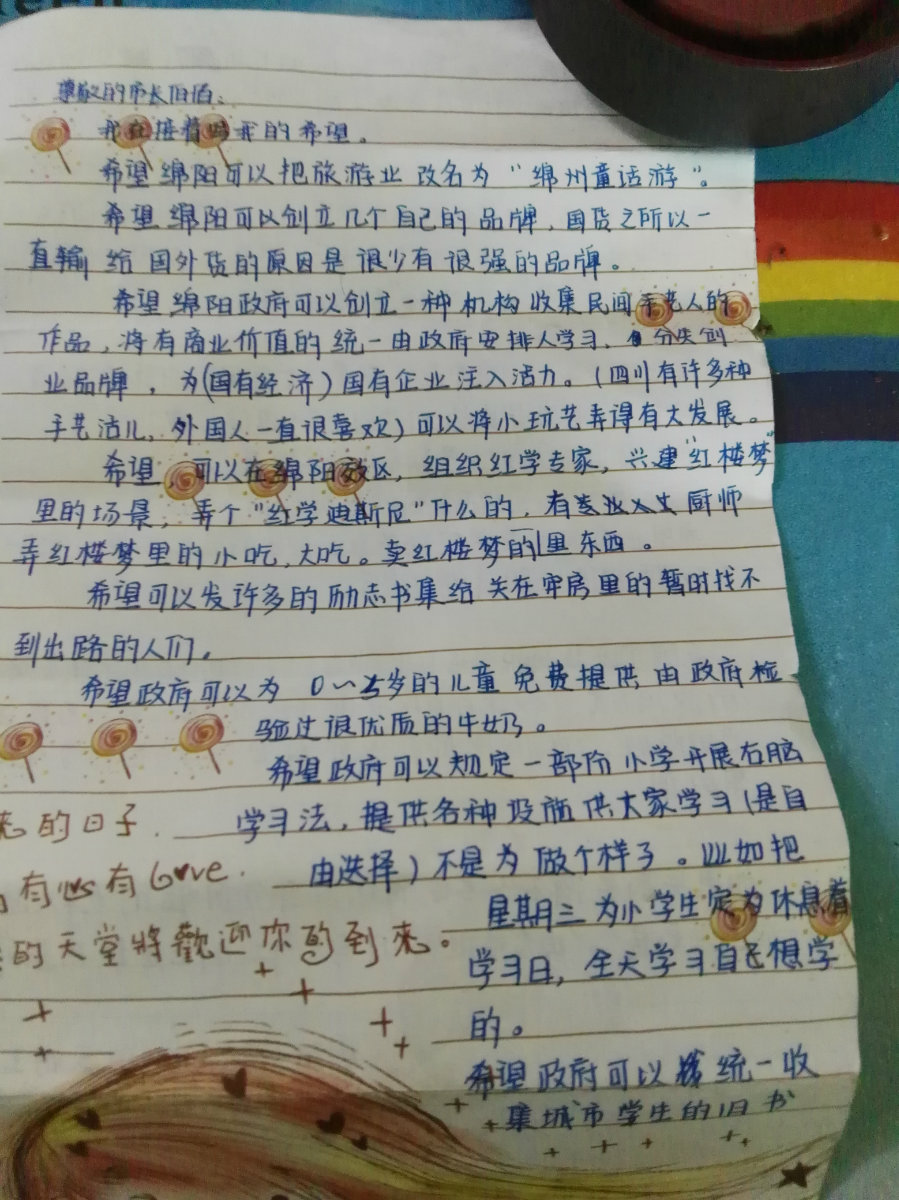 尊敬的市长伯伯：
我在接着写我的希望。
希望绵阳可以把旅游业改名为“绵州童话游”。
希望绵阳可以创立几个自己的品牌，国货之所以一
直输给国外货的原因是很少有很强的品牌。
希望绵阳政府可以创立一种机构收集民间手艺人的
作品，将有商业价值的统一由政府安排人学习、分失创
业品牌，为（国有经济）国有企业注入活力。（四川有许多种
手艺活儿，外国人一直很喜欢）可以将小玩艺弄得有大发展。
希望，可以在绵阳效区，组织红学专家，兴建“红楼梦”
里的场景，弄个“红学迪斯尼”什么的，有 厨师
弄红楼梦里的小吃，大吃。卖红楼梦的里东西。
希望可以发许多的励志书集给关在牢房里的暂时找不
到出路的人们。
希望政府可以为0~5岁的儿童免费提供由政府检
验过很优质的牛奶。
希望政府可以规定一部份小学开展右脑
学习法，提供各种设施供大家学习（是自
由选择）不是为做个样子。比如把
星期三为小学生定为休息着
学习日，全天学习自己想学
的。
希望政府可以统一收
集城市学生的旧书
来的日子.
有心有Love.
的天堂將歡迎你的到來。